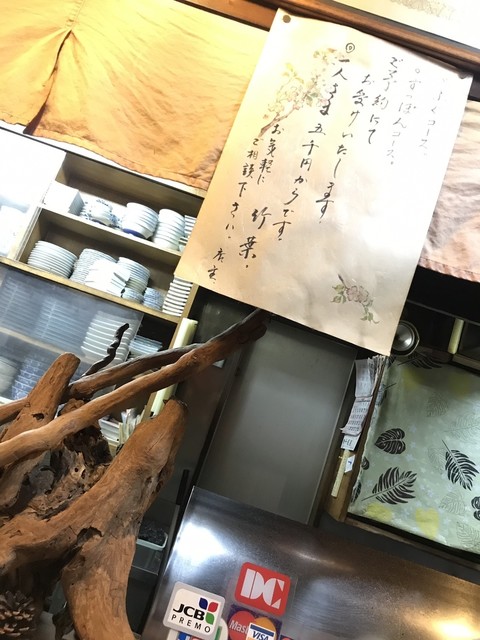 ーくコース。
○すっぽんコース。
ご予約にて
お受けいたします。
㊐一人さま五千円からです。
お気軽に
ご相談下さい。
竹葉。
店主
DC
JCB
PREMO
Mas
VISA